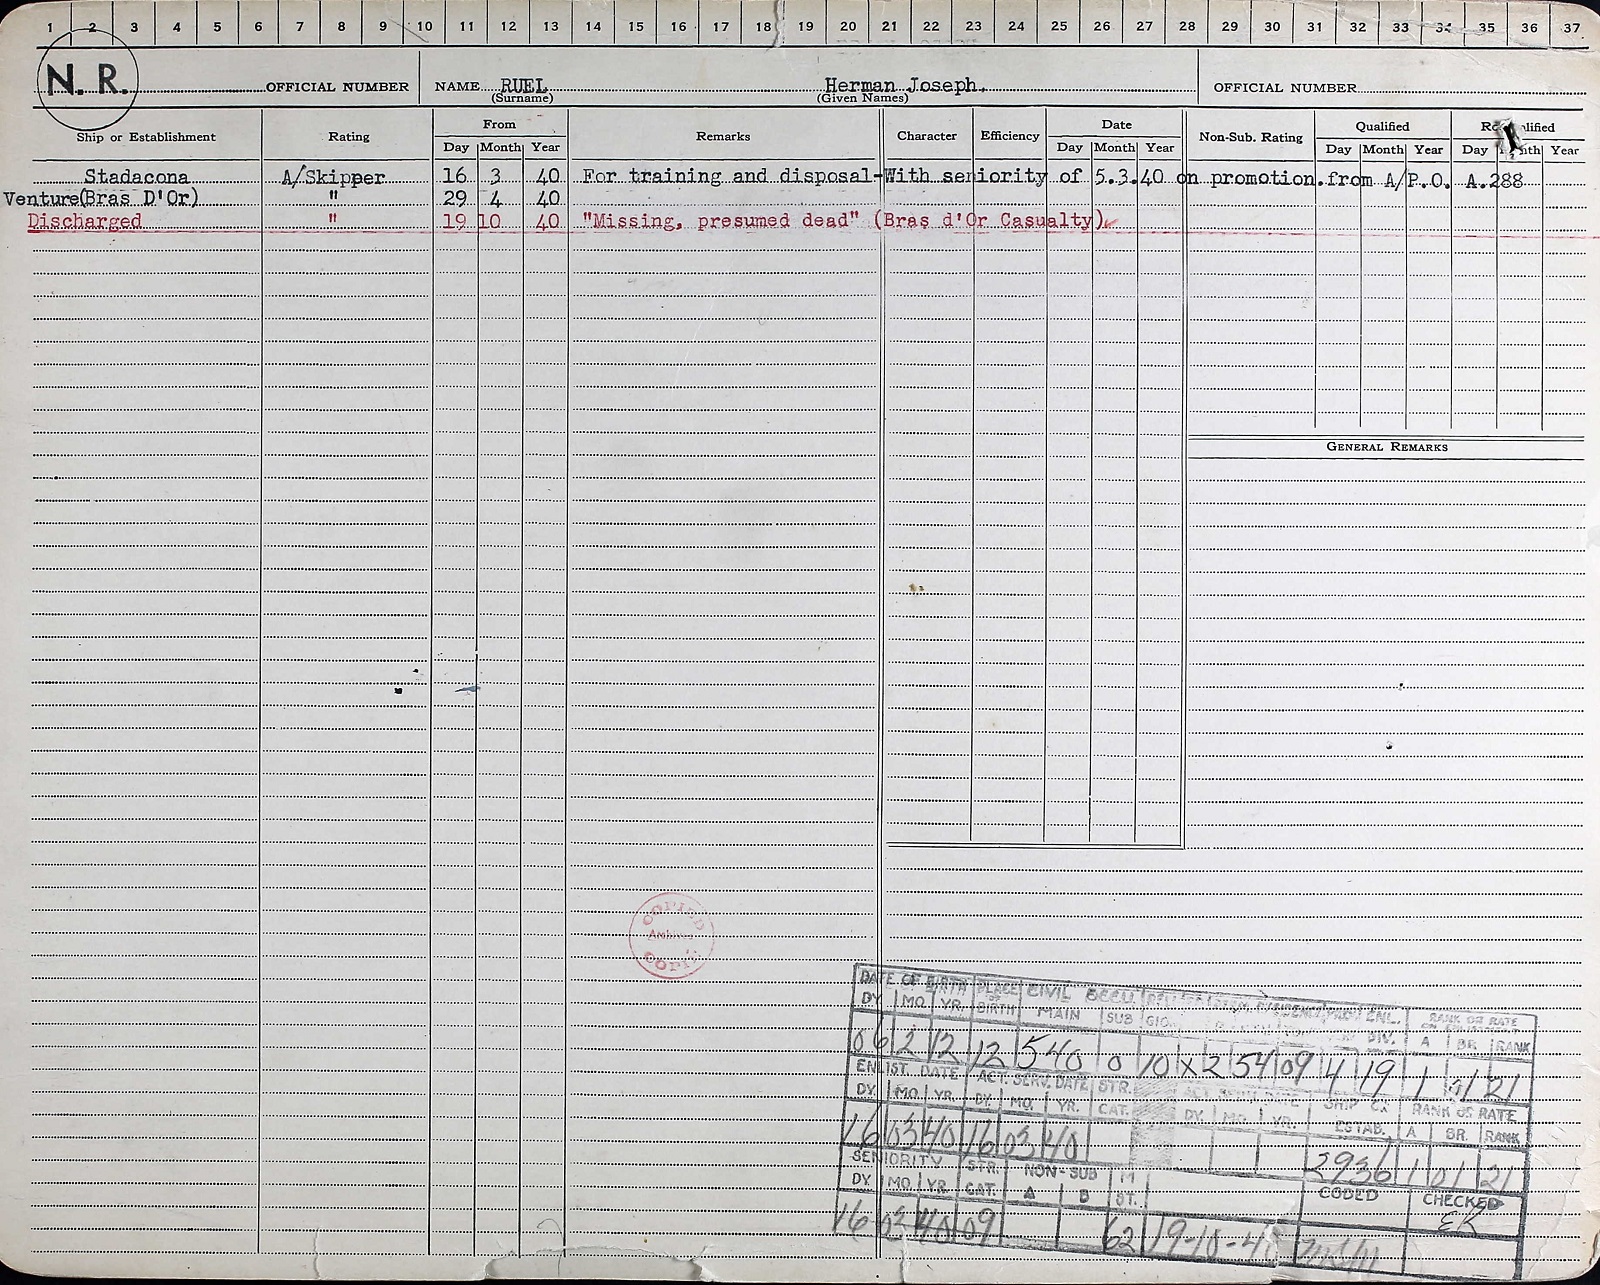 1 2 3 4 5 6 7 8 9 10 11 12 13 14 15 16 17 18 19 20 21 22 23 24 25 26 27 28 29 30 31 32 33 34 35 36 37
N. R. OFFICIAL NUMBER NAME RUEL Herman Joseph. OFFICIAL NUMBER
(Surname) (Given Names)
Ship or Establishment Rating From Remarks Character Efficiency Date Non-Sub. Rating Qualified
Day Month Year Day Month Year Day Month Year Day Year
Stadacona A/Skipper 16 3 40 For training and disposal-With seniority of 5.3.40 on promotion from A/P.O. A.288
Venture(Bras D'Or) " 29 4 40
Discharged " 19 10 40 "Missing, presumed dead" (Bras d'Or Casualty)
GENERAL REMARKS
COPIED
COPIE
DATE OF BIRTH PLACE OF BIRTH CIVIL OCCU. ENL. RANK OR RATE
DY. MO. YR. MAIN SUB DIV. A BR. RANK
06 2 12 12 540 0 10 X2 54 09 4 19 1 21
ENLIST. DATE ACT. SERV. DATE STR. CAT. SHIP OR ESTAB. RANK OR RATE
DY. MO. YR. DY. MO. YR. DY. MO. YR. A BR. RANK
16 03 40 16 03 40 2936 1 01 21
SENIORITY STR. CAT. NON-SUB M ST. CODED CHECKED
DY. MO. YR. A B EK
16 03 40 09 62 19-10-40